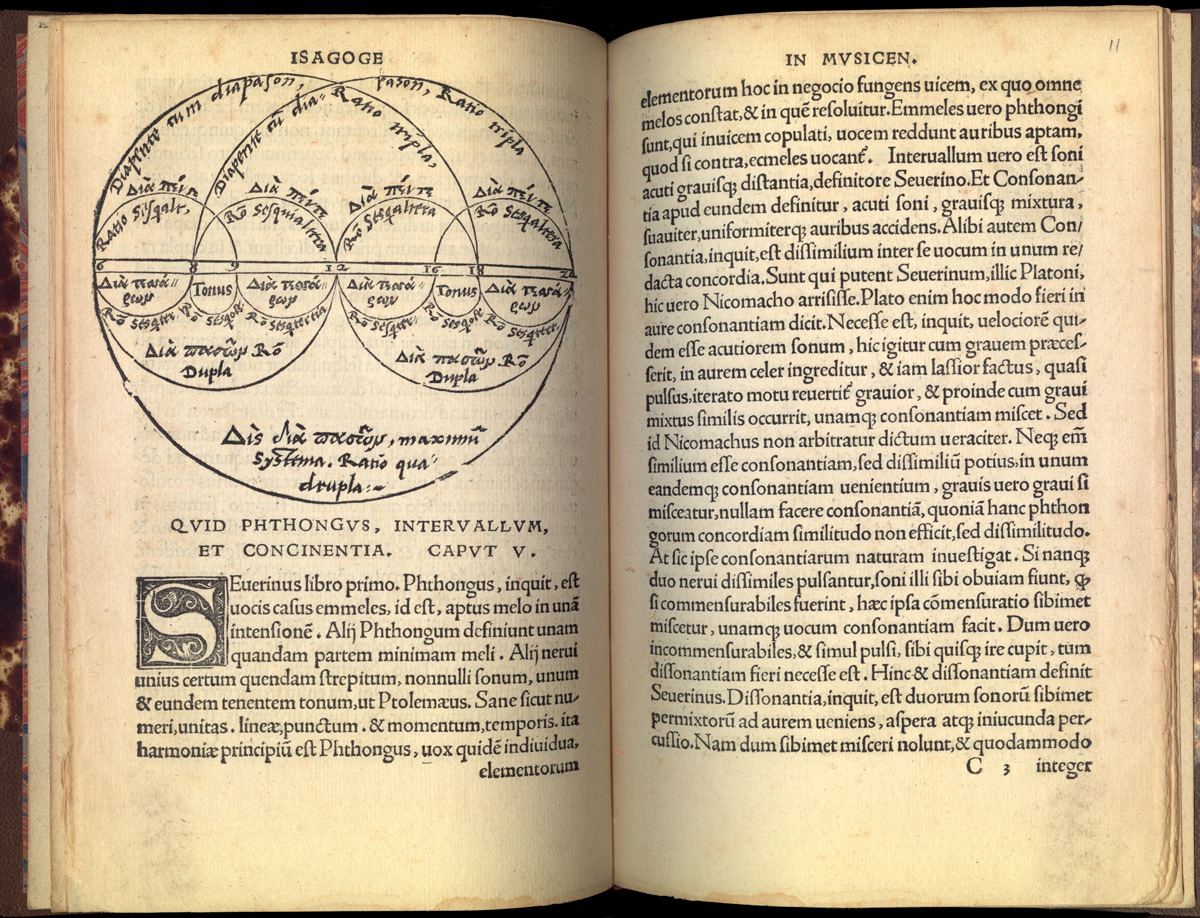 ISAGOGE
Diapente cum diapason,
pason, Ratio tripla
Diapente cū dia-
Ratio tripla,
Διὰ πέντε
Διὰ πέντε
Διὰ πέντε
Διὰ πέντε
Ratio Sesqalt,
Rō Sesquialtera
Rō Sesqaltera
Rō Sesqaltera
6 8 9 12 16 18
Διὰ τεσσά-
ρων
Tonus
Διὰ τεσσά-
ρων
Διὰ τεσσά-
ρων
Tonus
Διὰ τεσσά-
ρων
Rō Sesqtertia
Διὰ πασῶν Rō
Dupla
Διὰ πασῶν Rō
Dupla
Δὶς διὰ πασῶν, maximū
systema. Ratio qua-
drupla:-
QVID PHTHONGVS, INTERVALLVM,
ET CONCINENTIA. CAPVT V.
SEuerinus libro primo. Phthongus, inquit, est
uocis casus emmeles, id est, aptus melo in unā
intensionē. Alij Phthongum definiunt unam
quandam partem minimam meli. Alij nerui
unius certum quendam strepitum, nonnulli sonum, unum
& eundem tenentem tonum, ut Ptolemæus. Sane sicut nu-
meri, unitas. lineæ, punctum. & momentum, temporis. ita
harmoniæ principiū est Phthongus, uox quidē indiuidua,
elementorum
IN MVSICEN.
11
elementorum hoc in negocio fungens uicem, ex quo omne
melos constat, & in quē resoluitur. Emmeles uero phthongi
sunt, qui inuicem copulati, uocem reddunt auribus aptam,
quod si contra, ecmeles uocant̄. Interuallum uero est soni
acuti grauisq; distantia, definitore Seuerino. Et Consonan-
tia apud eundem definitur, acuti soni, grauisq; mixtura,
suauiter, uniformiterq; auribus accidens. Alibi autem Con/
sonantia, inquit, est dissimilium inter se uocum in unum re/
dacta concordia. Sunt qui putent Seuerinum, illic Platoni,
hic uero Nicomacho arrisisse. Plato enim hoc modo fieri in
aure consonantiam dicit. Necesse est, inquit, uelociorē qui-
dem esse acutiorem sonum, hic igitur cum grauem præces-
serit, in aurem celer ingreditur, & iam lassior factus, quasi
pulsus, iterato motu reuertit̄ grauior, & proinde cum graui
mixtus similis occurrit, unamq; consonantiam miscet. Sed
id Nicomachus non arbitratur dictum ueraciter. Neq; em̄
similium esse consonantiam, sed dissimiliū potius, in unum
eandemq; consonantiam uenientium, grauis uero graui si
misceatur, nullam facere consonantiā, quoniā hanc phthon
gorum concordiam similitudo non efficit, sed dissimilitudo.
At sic ipse consonantiarum naturam inuestigat. Si nanq;
duo nerui dissimiles pulsantur, soni illi sibi obuiam fiunt, ꝙ
si commensurabiles fuerint, hæc ipsa cōmensuratio sibimet
miscetur, unamq; uocum consonantiam facit. Dum uero
incommensurabiles, & simul pulsi, sibi quisq; ire cupit, tum
dissonantiam fieri necesse est. Hinc & dissonantiam definit
Seuerinus. Dissonantia, inquit, est duorum sonorū sibimet
permixtorū ad aurem ueniens, aspera atq; iniucunda per-
cussio. Nam dum sibimet misceri nolunt, & quodammodo
C 3 integer